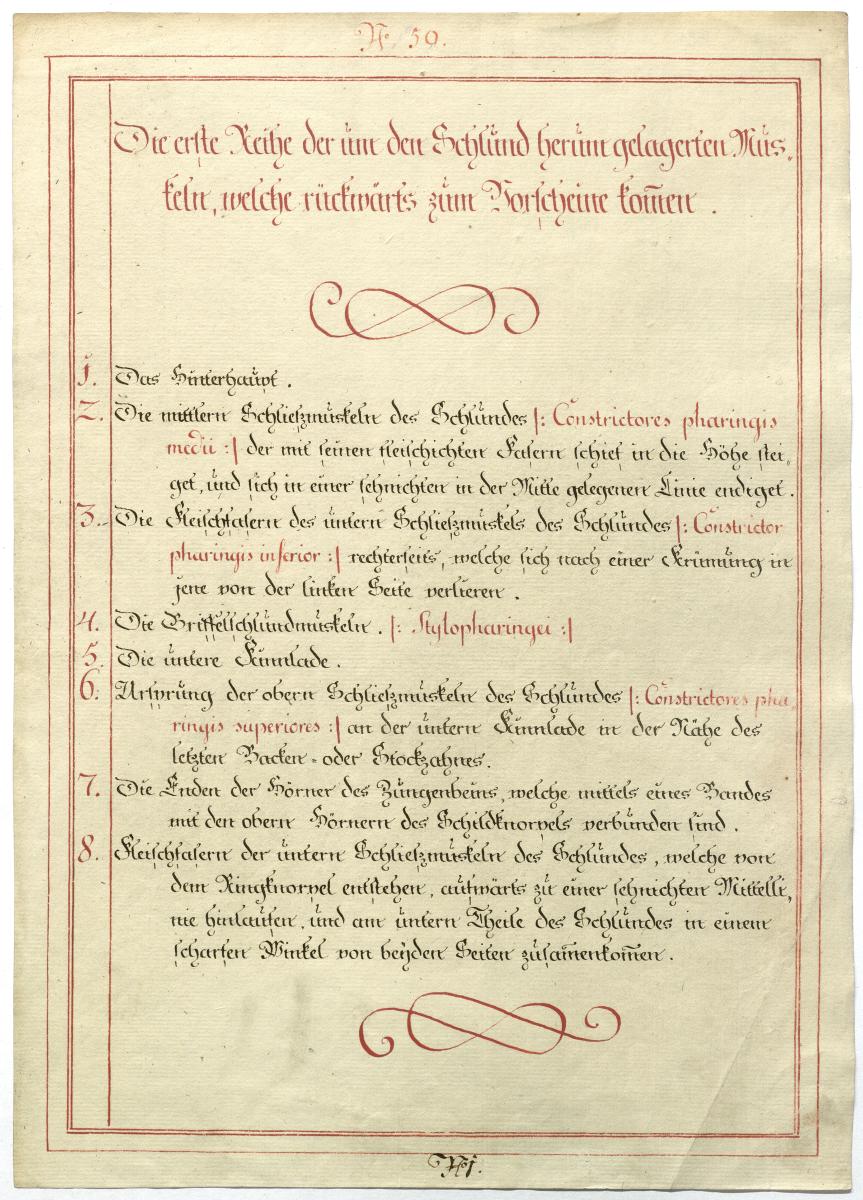 No 50.
Die erste Reihe der um den Schlund herum gelagerten Mus-
keln, welche rückwärts zum Vorscheine kom̄en.
1. Das Hinterhaupt.
2. Die mittlern Schließmuskeln des Schlundes |: Constrictores pharingis
medii :| der mit seinen fleischichten Fasern schief in die Höhe stei-
get, und sich in einer sehnichten in der Mitte gelegenen Linie endiget.
3. Die Fleischfasern des untern Schließmuskels des Schlundes |: Constrictor
pharingis inferior :| rechterseits, welche sich nach einer Krümung in
jene von der linken Seite verlieren.
4. Die Griffelschlundmuskeln. |: Stylopharingei :|
5. Die untere Kinnlade.
6. Ursprung der obern Schließmuskeln des Schlundes |: Constrictores pha-
ringis superiores :| an der untern Kinnlade in der Nähe des
letzten Backen- oder Stockzahnes.
7. Die Enden der Hörner des Zungenbeins, welche mittels eines Bandes
mit den obern Hörnern des Schildknorpels verbunden sind.
8. Fleischfasern der untern Schließmuskeln des Schlundes, welche von
dem Ringknorpel entstehen, aufwärts zu einer sehnichten Mittelli-
nie hinlaufen, und am untern Theile des Schlundes in einem
scharfen Winkel von beyden Seiten zusam̄enkom̄en.